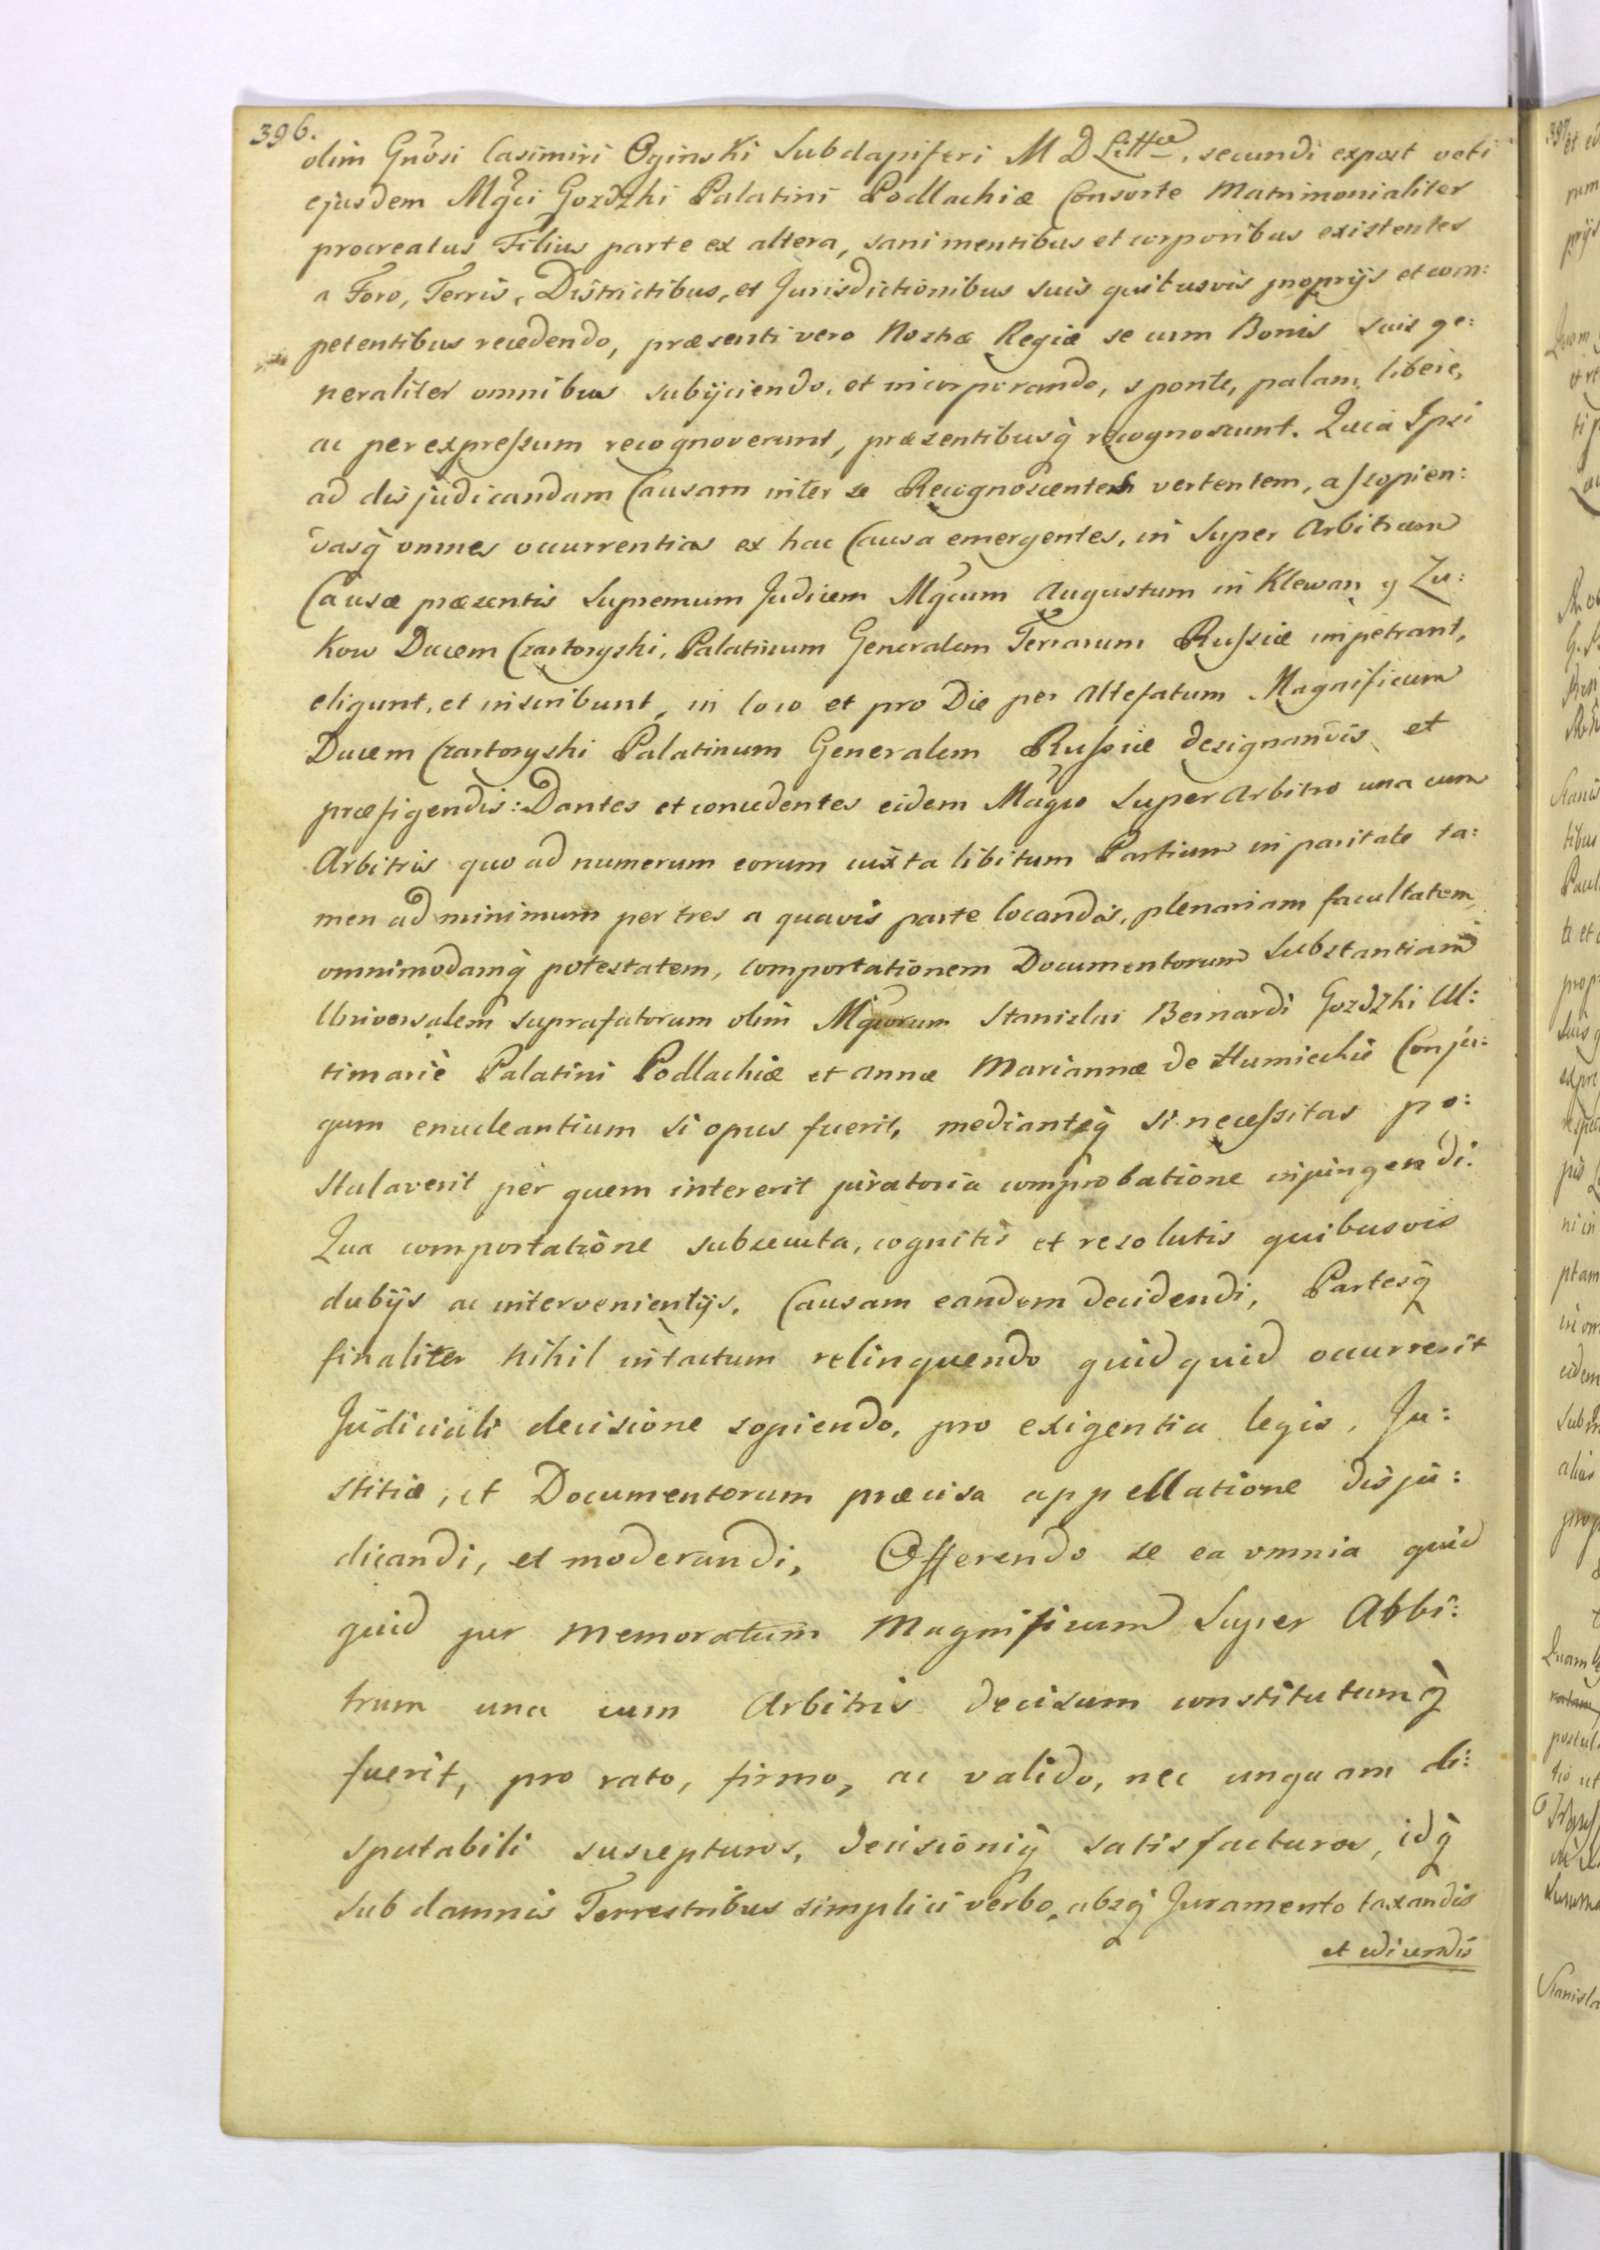 396.
olim Gnõsi Casimiri Oginski Subdapiferi M D Littæ, secundi expost voti
ejusdem Mgci Gozdzki Palatini Podlachiæ Consorte Matrimonialiter
procreatus Filius parte ex altera, sani mentibus et corporibus existentes
a Foro, Terris, Districtibus, et Jurisdictionibus suis quibusvis proprijs et com:
petentibus recedendo, præsenti vero Nostræ Regiæ se cum Bonis suis ge:
neraliter omnibus subijciendo, et incorporando, sponte, palam, libere,
ac per expressum recognoverunt, præsentibusq̀ recognoscunt. Quia Ipsi
ad disjudicandam Causam inter se Recognoscentes vertentem, assopien:
dasq̀ omnes occurrentias ex hac Causa emergentes, in Super Arbitrum
Causæ præsentis Supremum Judicem Mgcum Augustum in Klewan y Zu:
kow Ducem Czartoryski, Palatinum Generalem Terrarum Russiæ impetrant,
eligunt, et inscribunt, in loco et pro Die per Attefatum Magnificum
Ducem Czartoryski Palatinum Generalem Russiæ designandis et
præfigendis: Dantes et concedentes eidem Mágco Super Arbitro una cum
Arbitris quo ad numerum eorum iuxta libitum Partium in paritate ta:
men ad minimum per tres a quavis parte locandos, plenariam facultatem,
omnimodamq̀ potestatem, comportationem Documentorum Substantiam
Universalem suprafatorum olim Mgcorum Stanislai Bernardi Gozdzki Ul:
timarie Palatini Podlachiæ et Annæ Mariannæ de Humiecskie Conju:
gum enucleantium si opus fuerit, mediantéq̀ si necessitas po:
stulaverit per quem intererit juratoria comprobatione injungendi.
Qua comportatione subsecuta, cognitis et resolutis quibusvis
dubijs ac intervenientijs, Causam eandem decidendi, Partesq̀
finaliter nihil intactum relinquendo quidquid occurrerit
Judiciali decisione sopiendo, pro exigentia legis, Ju:
stitiæ, et Documentorum præcisa appellatione disju:
dicandi, et moderandi, Offerendo se ea omnia quid
quid per Memoratum Magnificum Super Abbi:
trum una cum Arbitris decisum constitutumq̀
fuerit, pro rato, firmo, ac valido, nec unquam di:
sputabili suscepturos, decisioniq̀ satisfacturos, idq̀
sub damnis Terrestribus simplici verbo, absq̀ Juramento taxandis
et edicendis